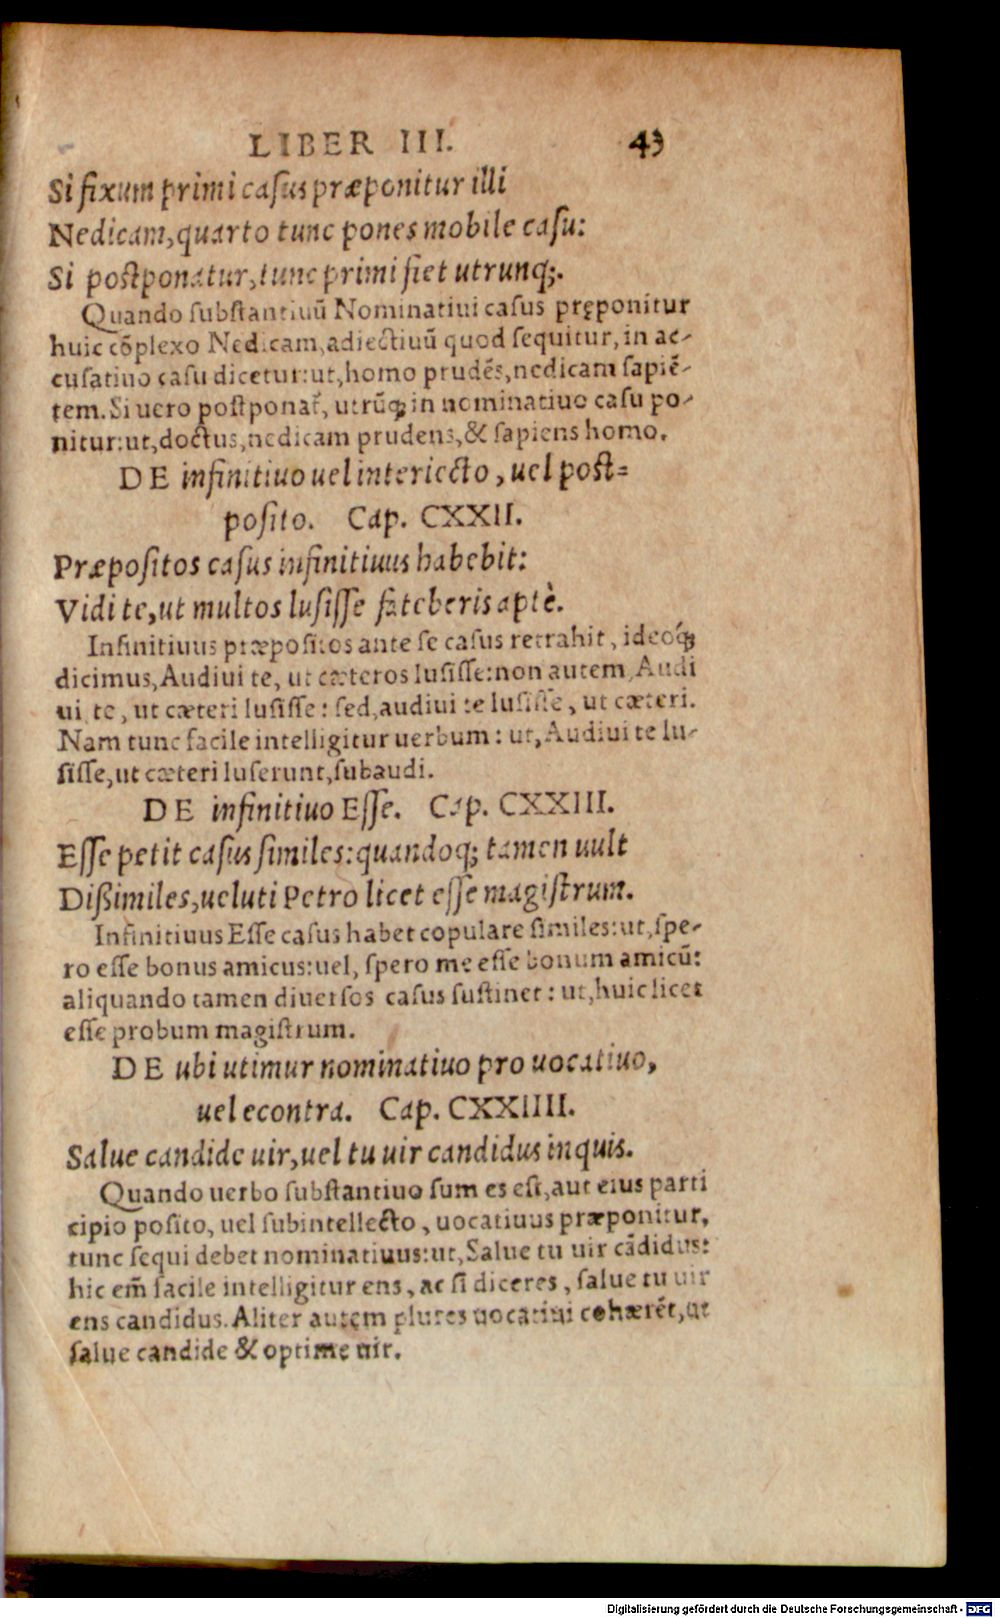 LIBER III. 43
Si fixum primi casus præponitur illi
Nedicam, quarto tunc pones mobile casu:
Si postponatur, tunc primi fiet utrunq;.
Quando substantiuū Nominatiui casus pręponitur
huic cōplexo Nedicam, adiectiuū quod sequitur, in ac-
cusatiuo casu dicetur: ut, homo prudēs, nedicam sapiē-
tem. Si uero postponat᷑, utrūq; in nominatiuo casu po-
nitur: ut, doctus, nedicam prudens, & sapiens homo.
DE infinitiuo uel interiecto, uel post=
posito. Cap. CXXII.
Præpositos casus infinitiuus habebit:
Vidi te, ut multos lusisse fateberis aptè.
Infinitiuus præpositos ante se casus retrahit, ideoq́;
dicimus, Audiui te, ut cæteros lusisse: non autem, Audi
ui te, ut cæteri lusisse: sed, audiui te lusisse, ut cæteri.
Nam tunc facile intelligitur uerbum: ut, Audiui te lu-
sisse, ut cæteri luserunt, subaudi.
DE infinitiuo Esse. Cap. CXXIII.
Esse petit casus similes: quandoq; tamen uult
Dißimiles, ueluti Petro licet esse magistrum.
Infinitiuus Esse casus habet copulare similes: ut, spe-
ro esse bonus amicus: uel, spero me esse bonum amicū:
aliquando tamen diuersos casus sustinet: ut, huic licet
esse probum magistrum.
DE ubi utimur nominatiuo pro uocatiuo,
uel econtra. Cap. CXXIIII.
Salue candide uir, uel tu uir candidus inquis.
Quando uerbo substantiuo sum es est, aut eius parti
cipio posito, uel subintellecto, uocatiuus præponitur,
tunc sequi debet nominatiuus: ut, Salue tu uir cādidus:
hic em̄ facile intelligitur ens, ac si diceres, salue tu uir
ens candidus. Aliter autem plures uocatiui cohærēt, ut
salue candide & optime uir.
Digitalisierung gefördert durch die Deutsche Forschungsgemeinschaft - DFG